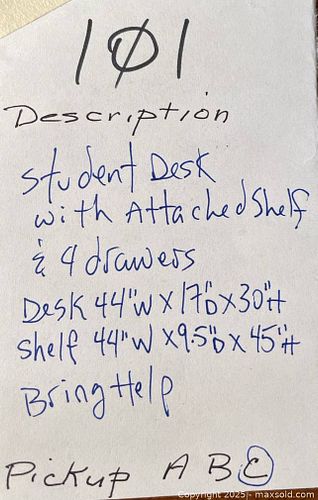 101
Description
Student Desk
with Attached Shelf
& 4 drawers
Desk 44"W x 17"D x 30"H
Shelf 44"W x 9.5"D x 45"H
Bring Help
Pickup A B C
Copyright 2025 - maxsold.com